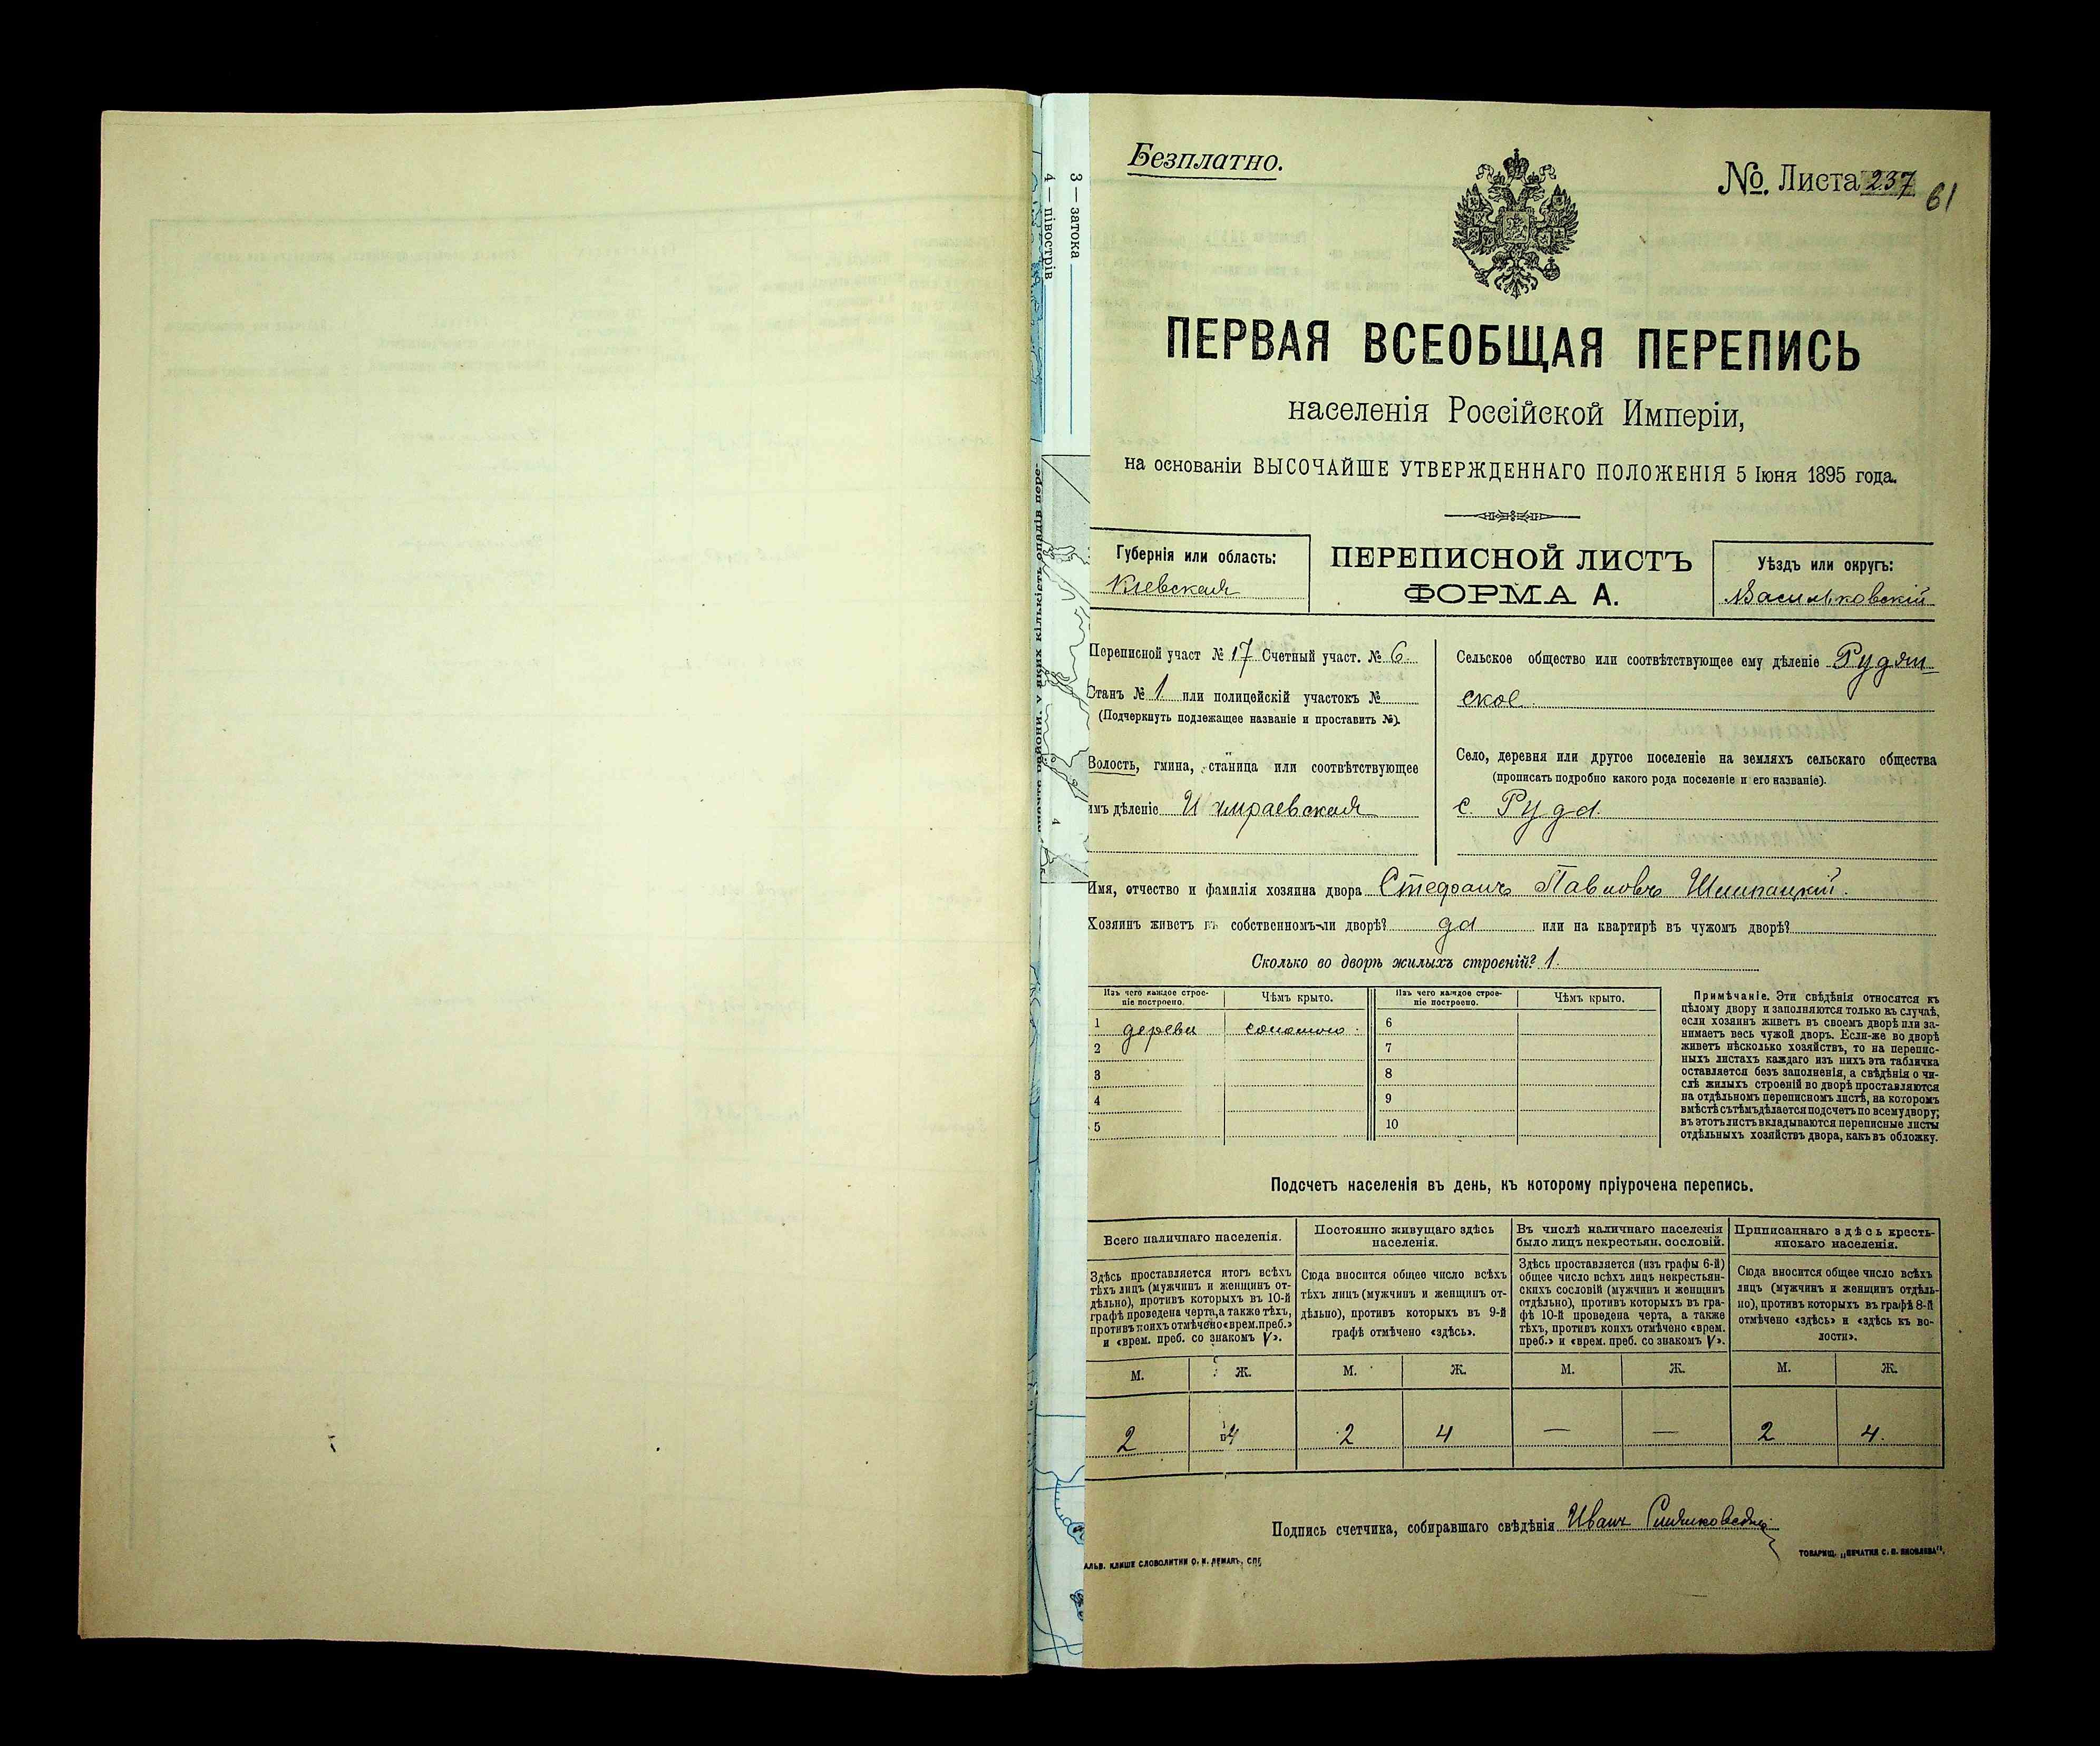 3 — затока
4 — півострів
кількість опадів пере-
Безплатно.
№. Листа 237
61
ПЕРВАЯ ВСЕОБЩАЯ ПЕРЕПИСЬ
населенія Россійской Имперіи,
на основаніи ВЫСОЧАЙШЕ УТВЕРЖДЕННАГО ПОЛОЖЕНІЯ 5 Іюня 1895 года.
Губернія или область:
Кіевская
ПЕРЕПИСНОЙ ЛИСТЪ
ФОРМА А.
Уѣздъ или округъ:
Васильковскій
Переписной участ № 17 Счетный участ. № 6
Станъ № 1 или полицейскій участокъ №
(Подчеркнуть подлежащее названіе и проставить №).
Волость, гмина, станица или соотвѣтствующее
имъ дѣленіе
Сельское общество или соотвѣтствующее ему дѣленіе Рудян-
ское.
Село, деревня или другое поселеніе на земляхъ сельскаго общества
(прописать подробно какого рода поселеніе и его названіе).
с. Руда.
Имя, отчество и фамилія хозяина двора Стефанъ Павловъ
Хозяинъ живетъ въ собственномъ-ли дворѣ? да или на квартирѣ въ чужомъ дворѣ?
Сколько во дворѣ жилыхъ строеній? 1.
Изъ чего каждое строе-
ніе построено.
Чѣмъ крыто.
Изъ чего каждое строе-
ніе построено.
Чѣмъ крыто.
1 дерева соломою.
2
3
4
5
6
7
8
9
10
Примѣчаніе. Эти свѣдѣнія относятся къ
цѣлому двору и заполняются только въ случаѣ,
если хозяинъ живетъ въ своемъ дворѣ или за-
нимаетъ весь чужой дворъ. Если-же во дворѣ
живетъ нѣсколько хозяйствъ, то на перепис-
ныхъ листахъ каждаго изъ нихъ эта табличка
оставляется безъ заполненія, а свѣдѣнія о чи-
слѣ жилыхъ строеній во дворѣ проставляются
на отдѣльномъ переписномъ листѣ, на которомъ
вмѣстѣ съ тѣмъ дѣлается подсчетъ по всему двору;
въ этотъ листъ вкладываются переписные листы
отдѣльныхъ хозяйствъ двора, какъ въ обложку.
Подсчетъ населенія въ день, къ которому пріурочена перепись.
Всего наличнаго населенія.
Здѣсь проставляется итогъ всѣхъ
тѣхъ лицъ (мужчинъ и женщинъ от-
дѣльно), противъ которыхъ въ 10-й
графѣ проведена черта, а также тѣхъ,
противъ коихъ отмѣчено «врем. преб.»
и «врем. преб. со знакомъ V».
Постоянно живущаго здѣсь
населенія.
Сюда вносится общее число всѣхъ
тѣхъ лицъ (мужчинъ и женщинъ от-
дѣльно), противъ которыхъ въ 9-й
графѣ отмѣчено «здѣсь».
Въ числѣ наличнаго населенія
было лицъ некрестьян. сословій.
Здѣсь проставляется (изъ графы 6-й)
общее число всѣхъ лицъ некрестьян-
скихъ сословій (мужчинъ и женщинъ
отдѣльно), противъ которыхъ въ гра-
фѣ 10-й проведена черта, а также
тѣхъ, противъ коихъ отмѣчено «врем.
преб.» и «врем. преб. со знакомъ V».
Приписаннаго здѣсь кресть-
янскаго населенія.
Сюда вносится общее число всѣхъ
лицъ (мужчинъ и женщинъ отдѣль-
но), противъ которыхъ въ графѣ 8-й
отмѣчено «здѣсь» и «здѣсь къ во-
лости».
М. Ж. М. Ж. М. Ж. М. Ж.
2 4 2 4 — — 2 4.
Подпись счетчика, собиравшаго свѣдѣнія Иванъ
АЛЬВ. КЛИШЕ СЛОВОЛИТНИ О. И. ЛЕМАНЪ, СПБ
ТОВАРИЩ. „ПЕЧАТНЯ С. П. ЯКОВЛЕВА".